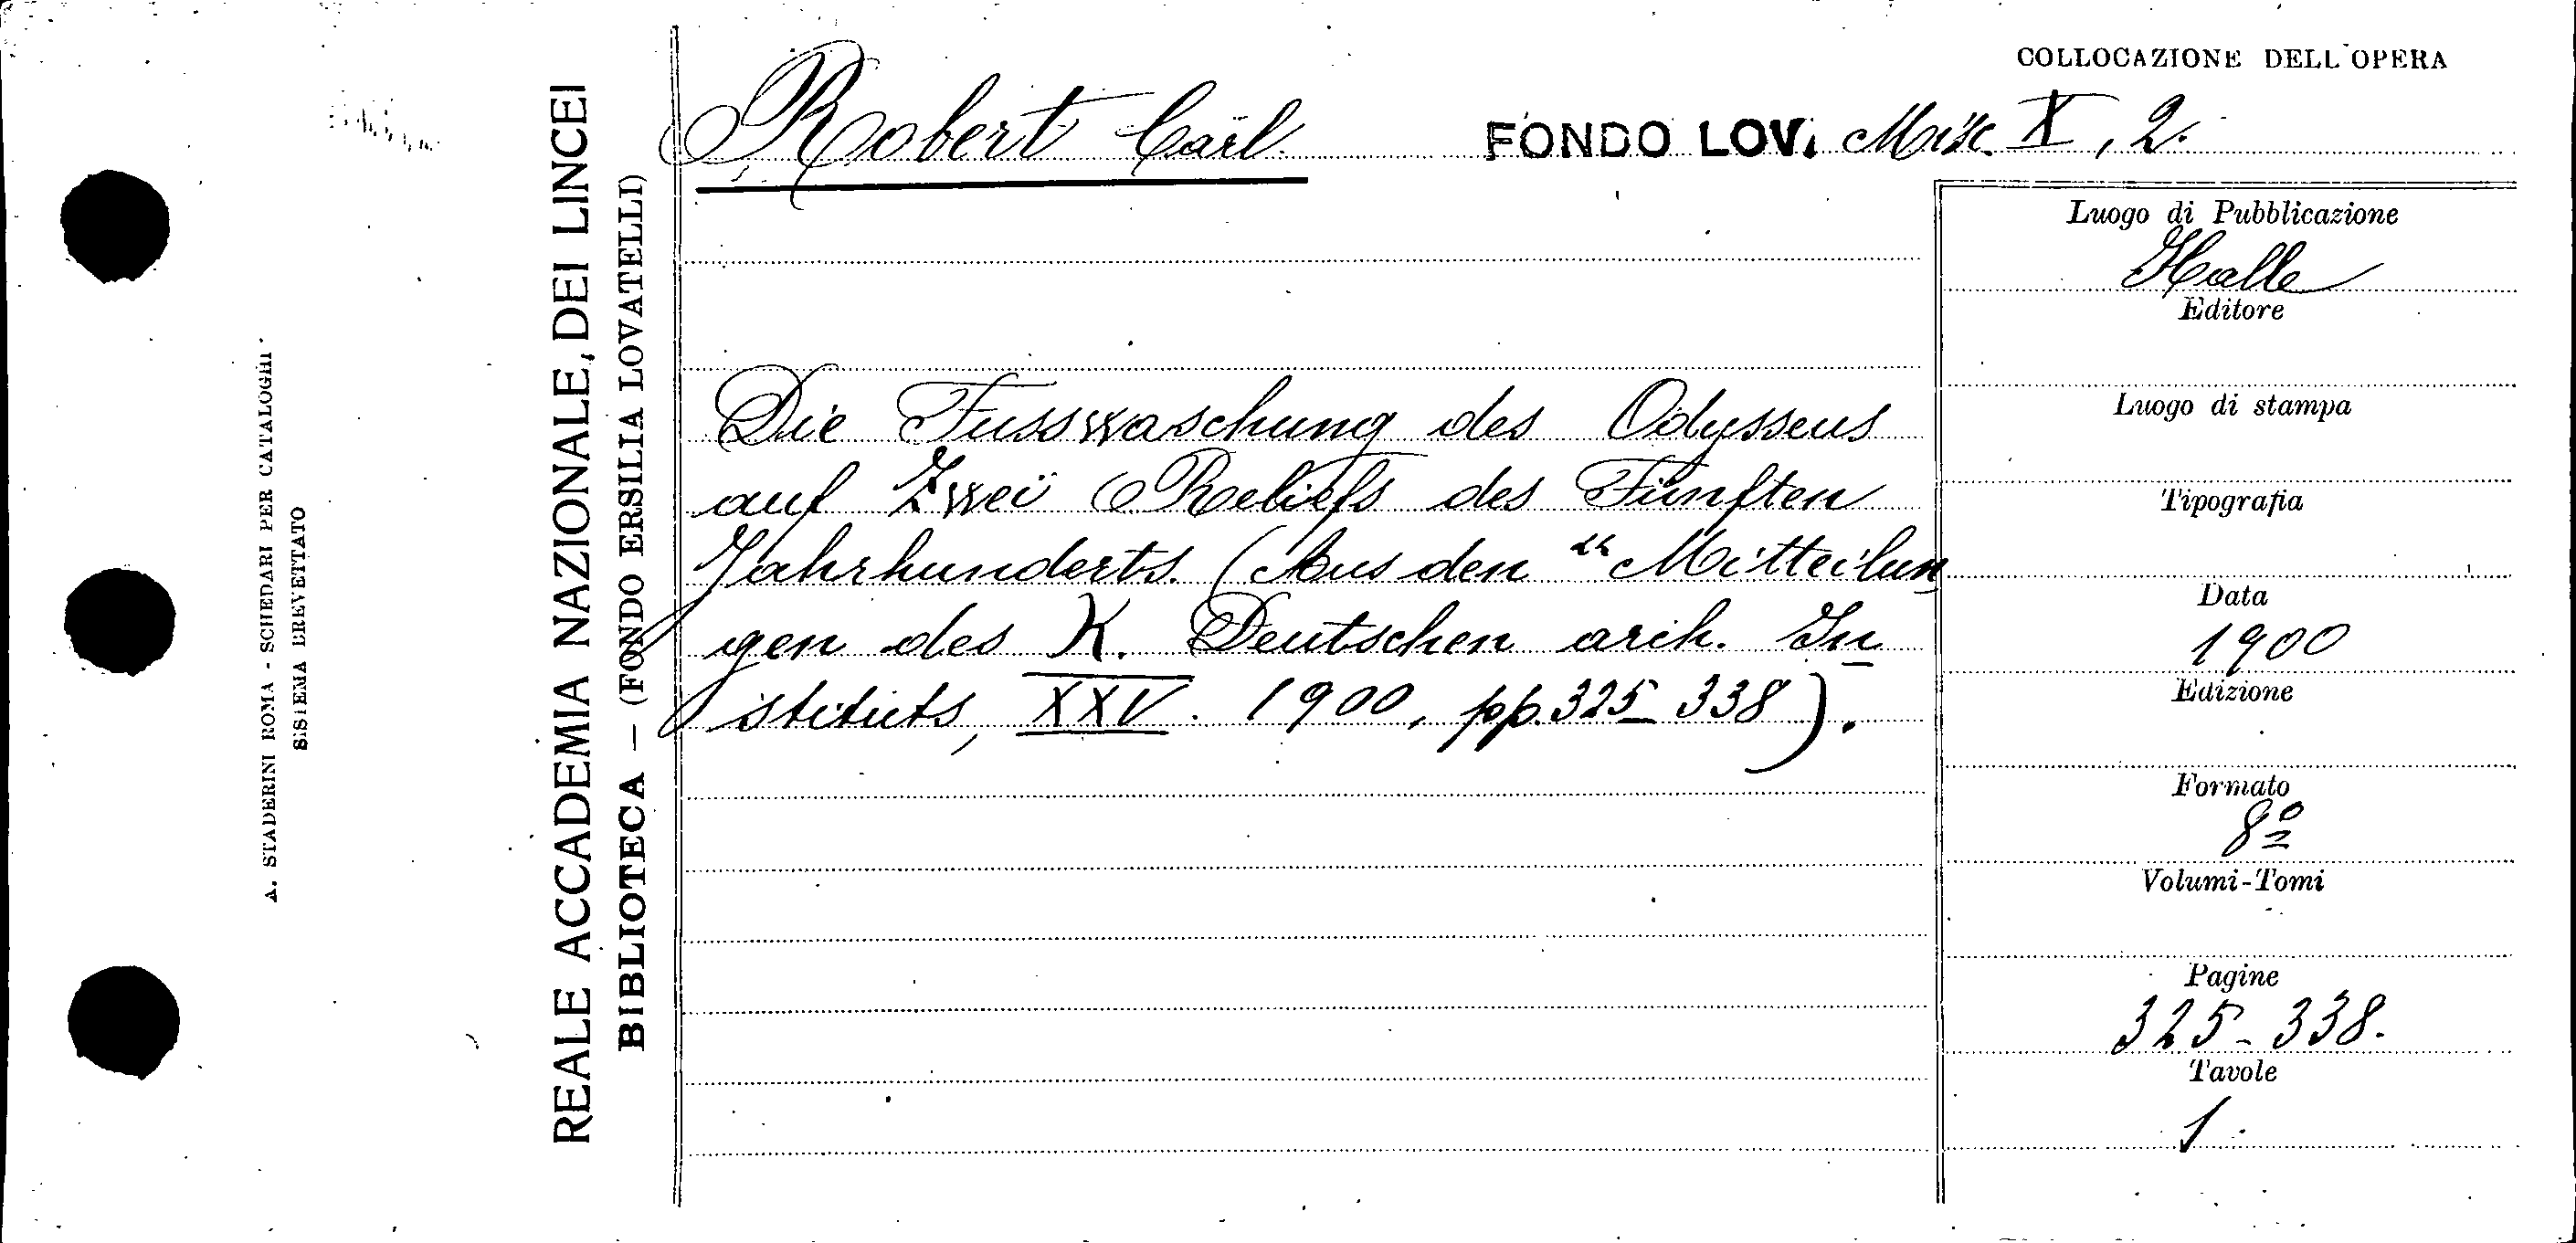 COLLOCAZIONE DELL'OPERA
Robert Carl
FONDO LOV. Misc. X, 2.
Die Fusswaschung des Odysseus
auf Zwei Reliefs des Fünften
Jahrhunderts. (Aus den "Mitteilun
gen des K. Deutschen arch. In
stituts, XXV. 1900, pp. 325-338).
Luogo di Pubblicazione
Halle
Editore
Luogo di stampa
Tipografia
Data
1900
Edizione
Formato
8º
Volumi-Tomi
Pagine
325-338.
Tavole
1
REALE ACCADEMIA NAZIONALE DEI LINCEI
BIBLIOTECA — (FONDO ERSILIA LOVATELLI)
A. STADERINI ROMA - SCHEDARI PER CATALOGHI
SISTEMA BREVETTATO